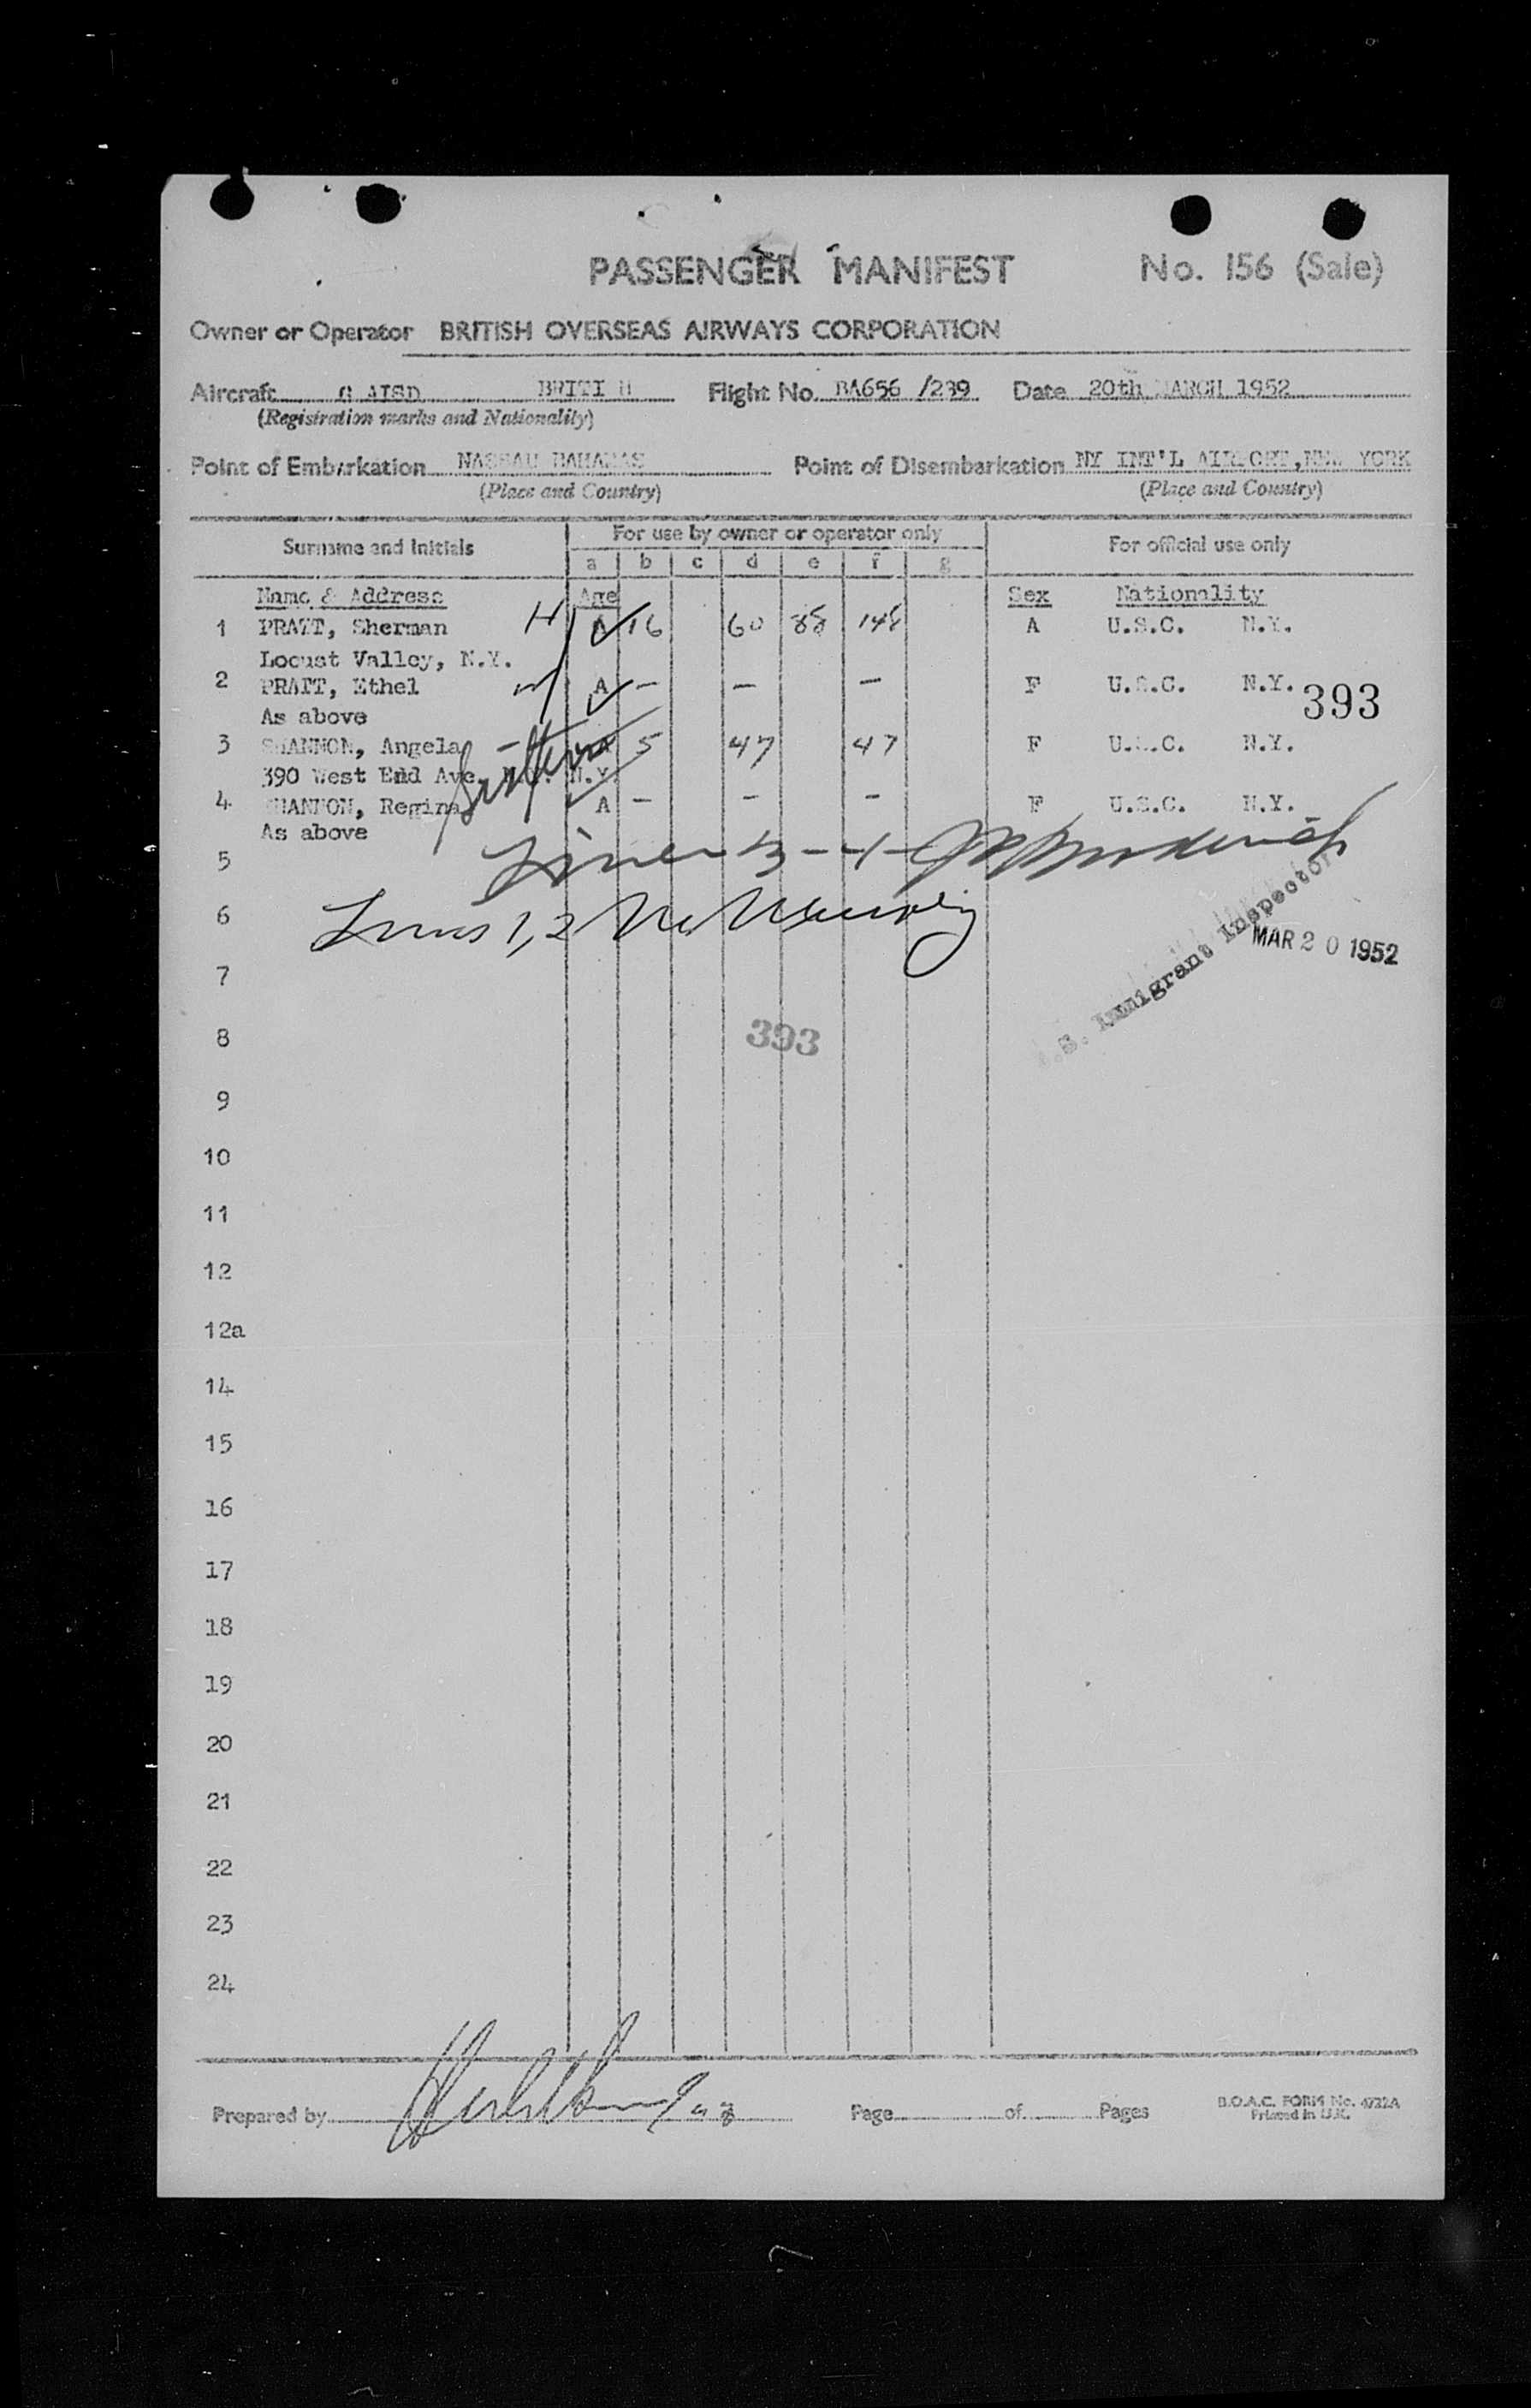 PASSENGER MANIFEST No. 156 (Sale)
Owner or Operator BRITISH OVERSEAS AIRWAYS CORPORATION
Aircraft G AISD BRITI H Flight No. BA656 /239 Date 20th MARCH 1952
(Registration marks and Nationality)
Point of Embarkation NASSAU BAHAMAS Point of Disembarkation NY INT'L AIRPORT, NEW YORK
(Place and Country) (Place and Country)
Surname and Initials For use by owner or operator only For official use only
a b c d e f g
Name & Address Age Sex Nationality
1 PRATT, Sherman H A 16 60 88 148 A U.S.C. N.Y.
Locust Valley, N.Y.
2 PRATT, Ethel W A - - - F U.S.C. N.Y.
393
As above
3 SHANNON, Angela 5 47 47 F U.S.C. N.Y.
390 West End Ave. N.Y. N.Y.
4 SHANNON, Regina A - - - F U.S.C. N.Y.
As above
5
6 Lines 1, 2
Immigrant Inspector
MAR 20 1952
7
8 393
9
10
11
12
12a
14
15
16
17
18
19
20
21
22
23
24
Prepared by Page of Pages
B.O.A.C. FORM No. 4722A
Printed in U.K.